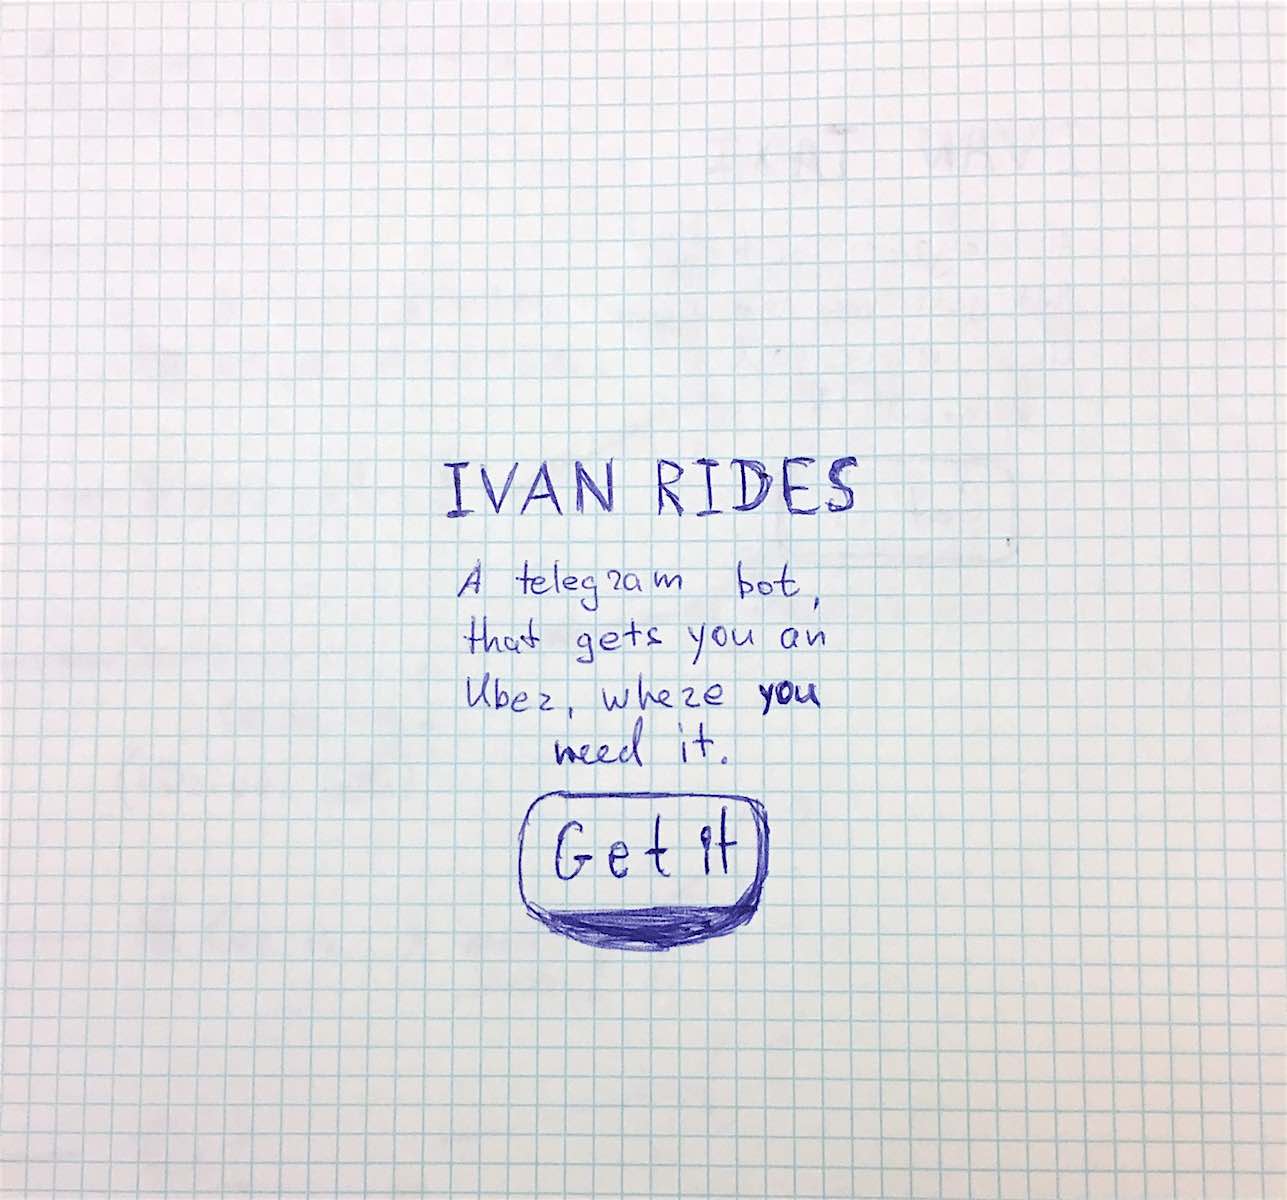 IVAN RIDES
A telegram bot,
that gets you an
Uber, where you
need it.
Get it